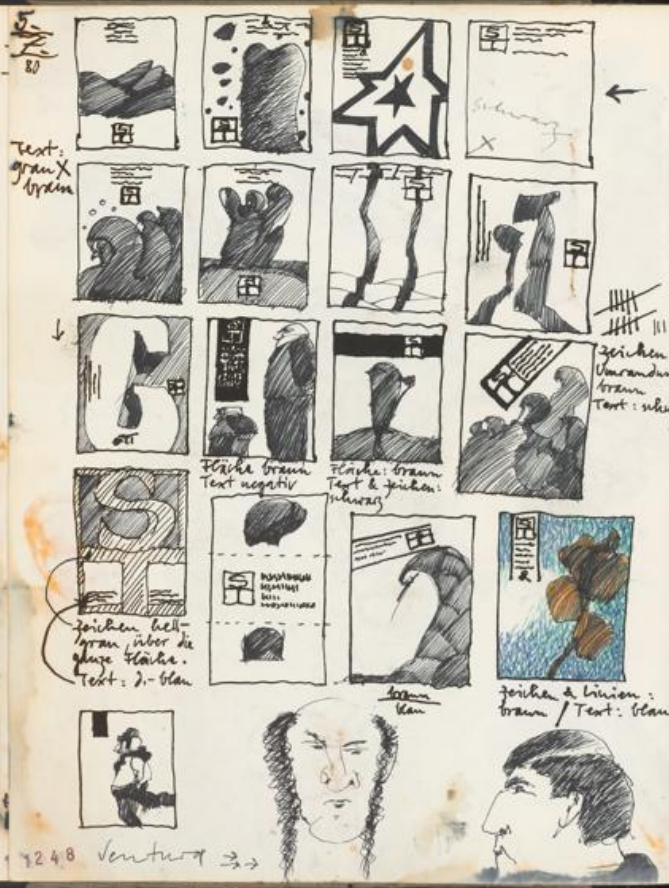 5.
7.
80
S
T
schwarz
X
Text:
grau X
braun
Zeichen
Umrandun
braun
Text: schw
Fläche braun
Text negativ
Fläche: braun
Text & Zeichen:
schwarz
S
T
Zeichen hell-
grau, über die
ganze Fläche.
Text: d.-blau
braun
blau
Zeichen & Linien:
braun / Text: blau
1248 Ventura